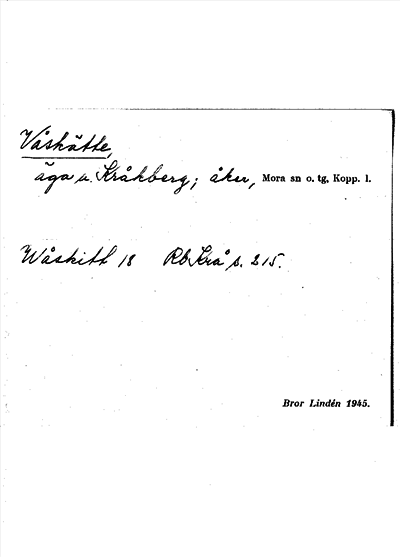 Våskätte,
äga u. Kråkberg; åker, Mora sn o. tg, Kopp. l.
Wåskitt 18 Rb Krå s. 215.
Bror Lindén 1945.